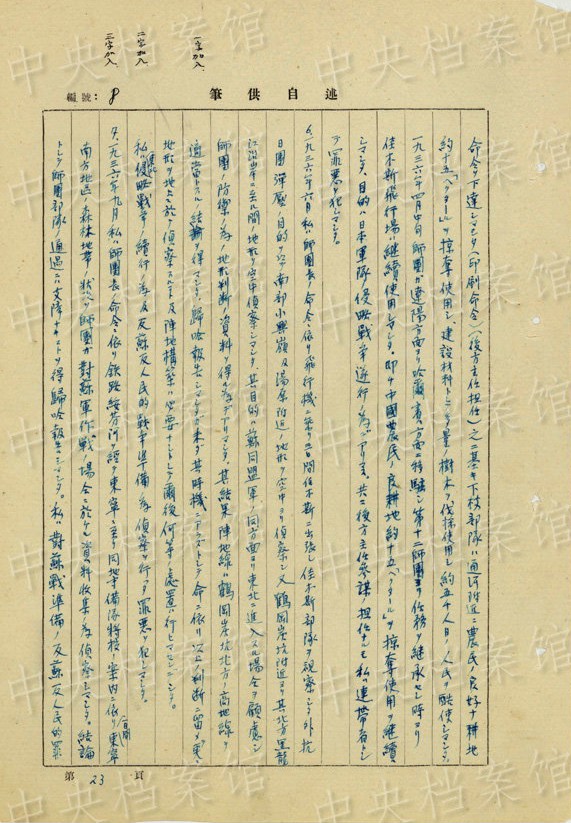 一字加入
二字加入
三字加入
編號：8
筆供自述
命令ヲ下達シマシタ（印刷命令）（後方主任担任）之ニ基キ下枝部隊ハ通河附近ニ農民ノ良好ナ耕地
約十五「ヘクタール」ヲ掠奪使用シ建設材料トシテ多量ノ樹木ヲ伐採使用シ約五千人日ノ人民ヲ酷使シマシタ。
一九三六年四月中旬師團ガ遼陽方面ヨリ哈爾賓方面ニ移駐シ第十二師團ヨリ任務ヲ継承セシ時ヨリ
佳木斯飛行場ハ継續使用シマシタ。即チ中國農民ノ良耕地約十五「ヘクタール」ヲ掠奪使用ヲ継續
シマシタ、目的ハ日本軍隊ノ侵略戦争遂行ノ為デアリマス。共ニ後方主任参謀ノ担任ナルモ私ハ連帯者トシ
テノ罪悪ヲ犯シマシタ。
6、一九三六年六月私ハ師團長ノ命令ニ依リ飛行機ニ乗リ三日間佳木斯ニ出張シ佳木斯部隊ヲ視察シタ外抗
日團彈壓ノ目的ヲ以テ南部小興嶺及湯原附近ノ地形ヲ空中ヨリ偵察シ又鶴岡炭坑附近ヨリ其北方黒龍
江沿岸ニ至ル間ノ地形ヲ空中偵察シマシタ、其目的ハ蘇同盟軍ノ同方面ヨリ東北ニ進入スル場合ヲ顧慮シ
師團ノ防禦ノ為ノ地形判断ノ資料ヲ得ル為デアリマシタ、其結果陣地線ハ鶴岡炭坑北方ノ高地線ヲ
適當トスル結論ヲ得マシタ、歸哈報告シマシタガ未ダ其時機ニアラズトシテ命ニ依リ以上ノ判断ニ留メ更ニ
地形ヲ地上ニ於テ偵察スルト及陣地構築ハ必要ナシトシテ爾後何等ノ處置ハ行ヒマセンデシタ。
私ハ侵略戦争ノ續行ノ為及反蘇反人民的戦争準備ノ為偵察ヲ行フタ罪悪ヲ犯シマシタ。
7、一九三六年九月私ハ師團長ノ命令ニ依リ鐵路綏芬河ヲ經テ東寧ニ至リ同地守備隊将校ノ案内ニ依リ一日間東寧
南方地區ノ森林地帯ノ状況ヲ師團ガ對蘇軍作戦ノ場合ニ於ケル資料収集ノ為偵察シマシタ。結論
トシテ師團部隊ノ通過ニハ支障ナキコトヲ得歸哈報告シマシタ。私ハ對蘇戦準備ノ反蘇反人民的罪
第23頁
中央档案馆